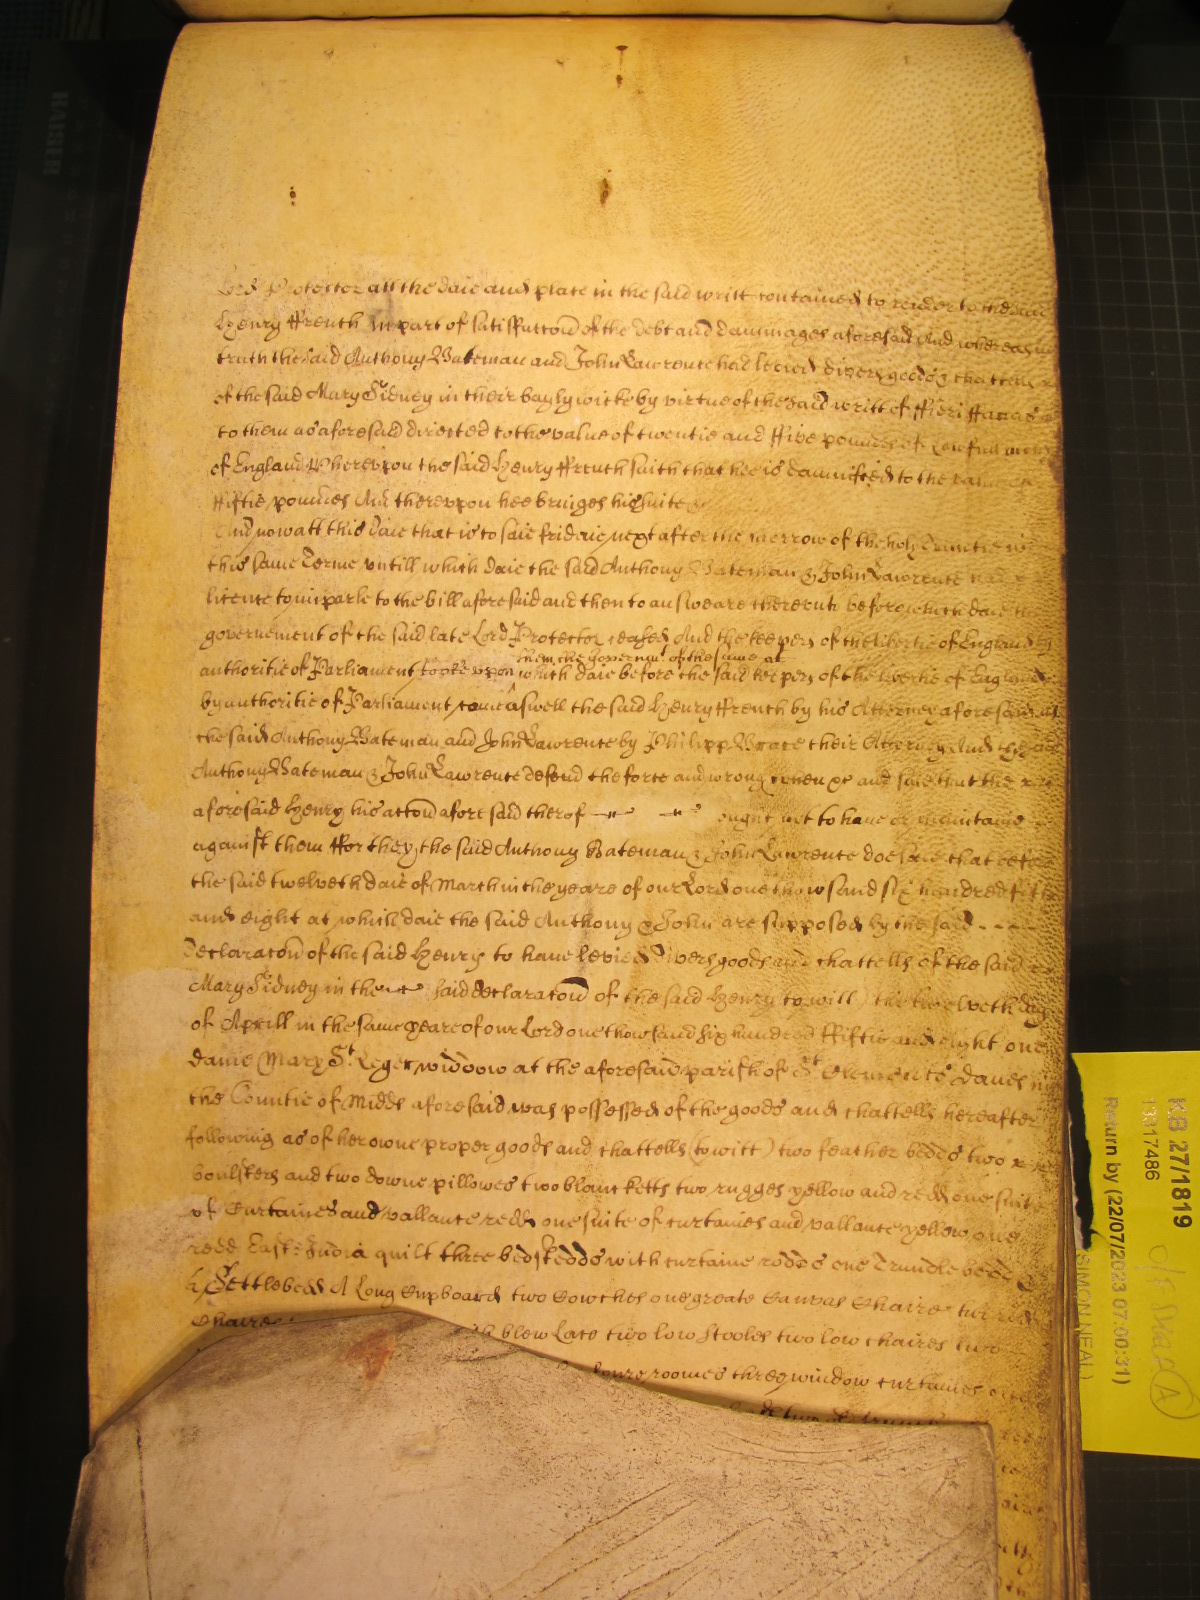 Lord Protector att the daie and place in the said writt contained to render to the said
Henry ffrench in part of satisffaccon of the debt and dammages aforesaid And whereas in
truth the said Anthony Bateman and John Lawrence had levied divers goods & chattells
of the said Mary Sidney in their baylywicke by virtue of the said writt of ffieri ffacias
to them as aforesaid directed to the value of twentie and ffive pounds of lawfull money
of England Whereupon the said Henry ffrench saith that hee is damnified to the value of
ffiftie pounds And thereuppon hee bringes his suite &c
And now att this daie that is to saie fridaie next after the morrow of the holy Trinitie in
this same Terme untill which daie the said Anthony Bateman & John Lawrence had
licence to imparle to the bill aforesaid and then to answeare thereunto before which daie the
government of the said late Lord Protector ceased And the keepers of the libertie of England by
them the governmt. of the same at
authoritie of Parliament tooke upon which daie before the said keepers of the libertie of England
by authoritie of Parliament come aswell the said Henry ffrench by his Attorney aforesaid as
the said Anthony Bateman and John Lawrence by Philipp Brace their Attorney And the said
Anthony Bateman & John Lawrence defend the force and wrong when &c and saie that the
aforesaid Henry his accon aforesaid therof ought not to have or maintaine
against them ffor they the said Anthony Bateman & John Lawrence doe saie that before
the said twelveth daie of March in the yeare of our Lord one thowsand six hundred fiftie
and eight at which daie the said Anthony & John are supposed by the said
Declaracon of the said Henry to have levied divers goods and chattells of the said
Mary Sidney in the said declaracon of the said Henry to witt the twelveth day
of Aprill in the same yeare of our Lord one thowsand six hundred ffiftie and eight one
dame Mary St. Leger widdow at the aforesaid parish of St. Clements Danes in
the Countie of Middx aforesaid was possessed of the goods and chattells hereafter
following as of her owne proper goods and chattells (to witt) two feather bedds two
boulsters and two downe pillowes two blanketts two rugges yellow and redd one suite
of Curtaines and vallance redd one suite of curtaines and vallance yellow one
redd East: India quilt three bedstedds with curtaine rodds one Trundle bedd
a Settlebedd A Long Cupboard two Cowches one greate Canvas Chaire
Chaire blew Lace two low stooles two low chaires two
roomes three window curtaines
two
KB 27/1819
13317486
Return by (22/07/2023 07:00:31)
SIMON NEAL
HABER